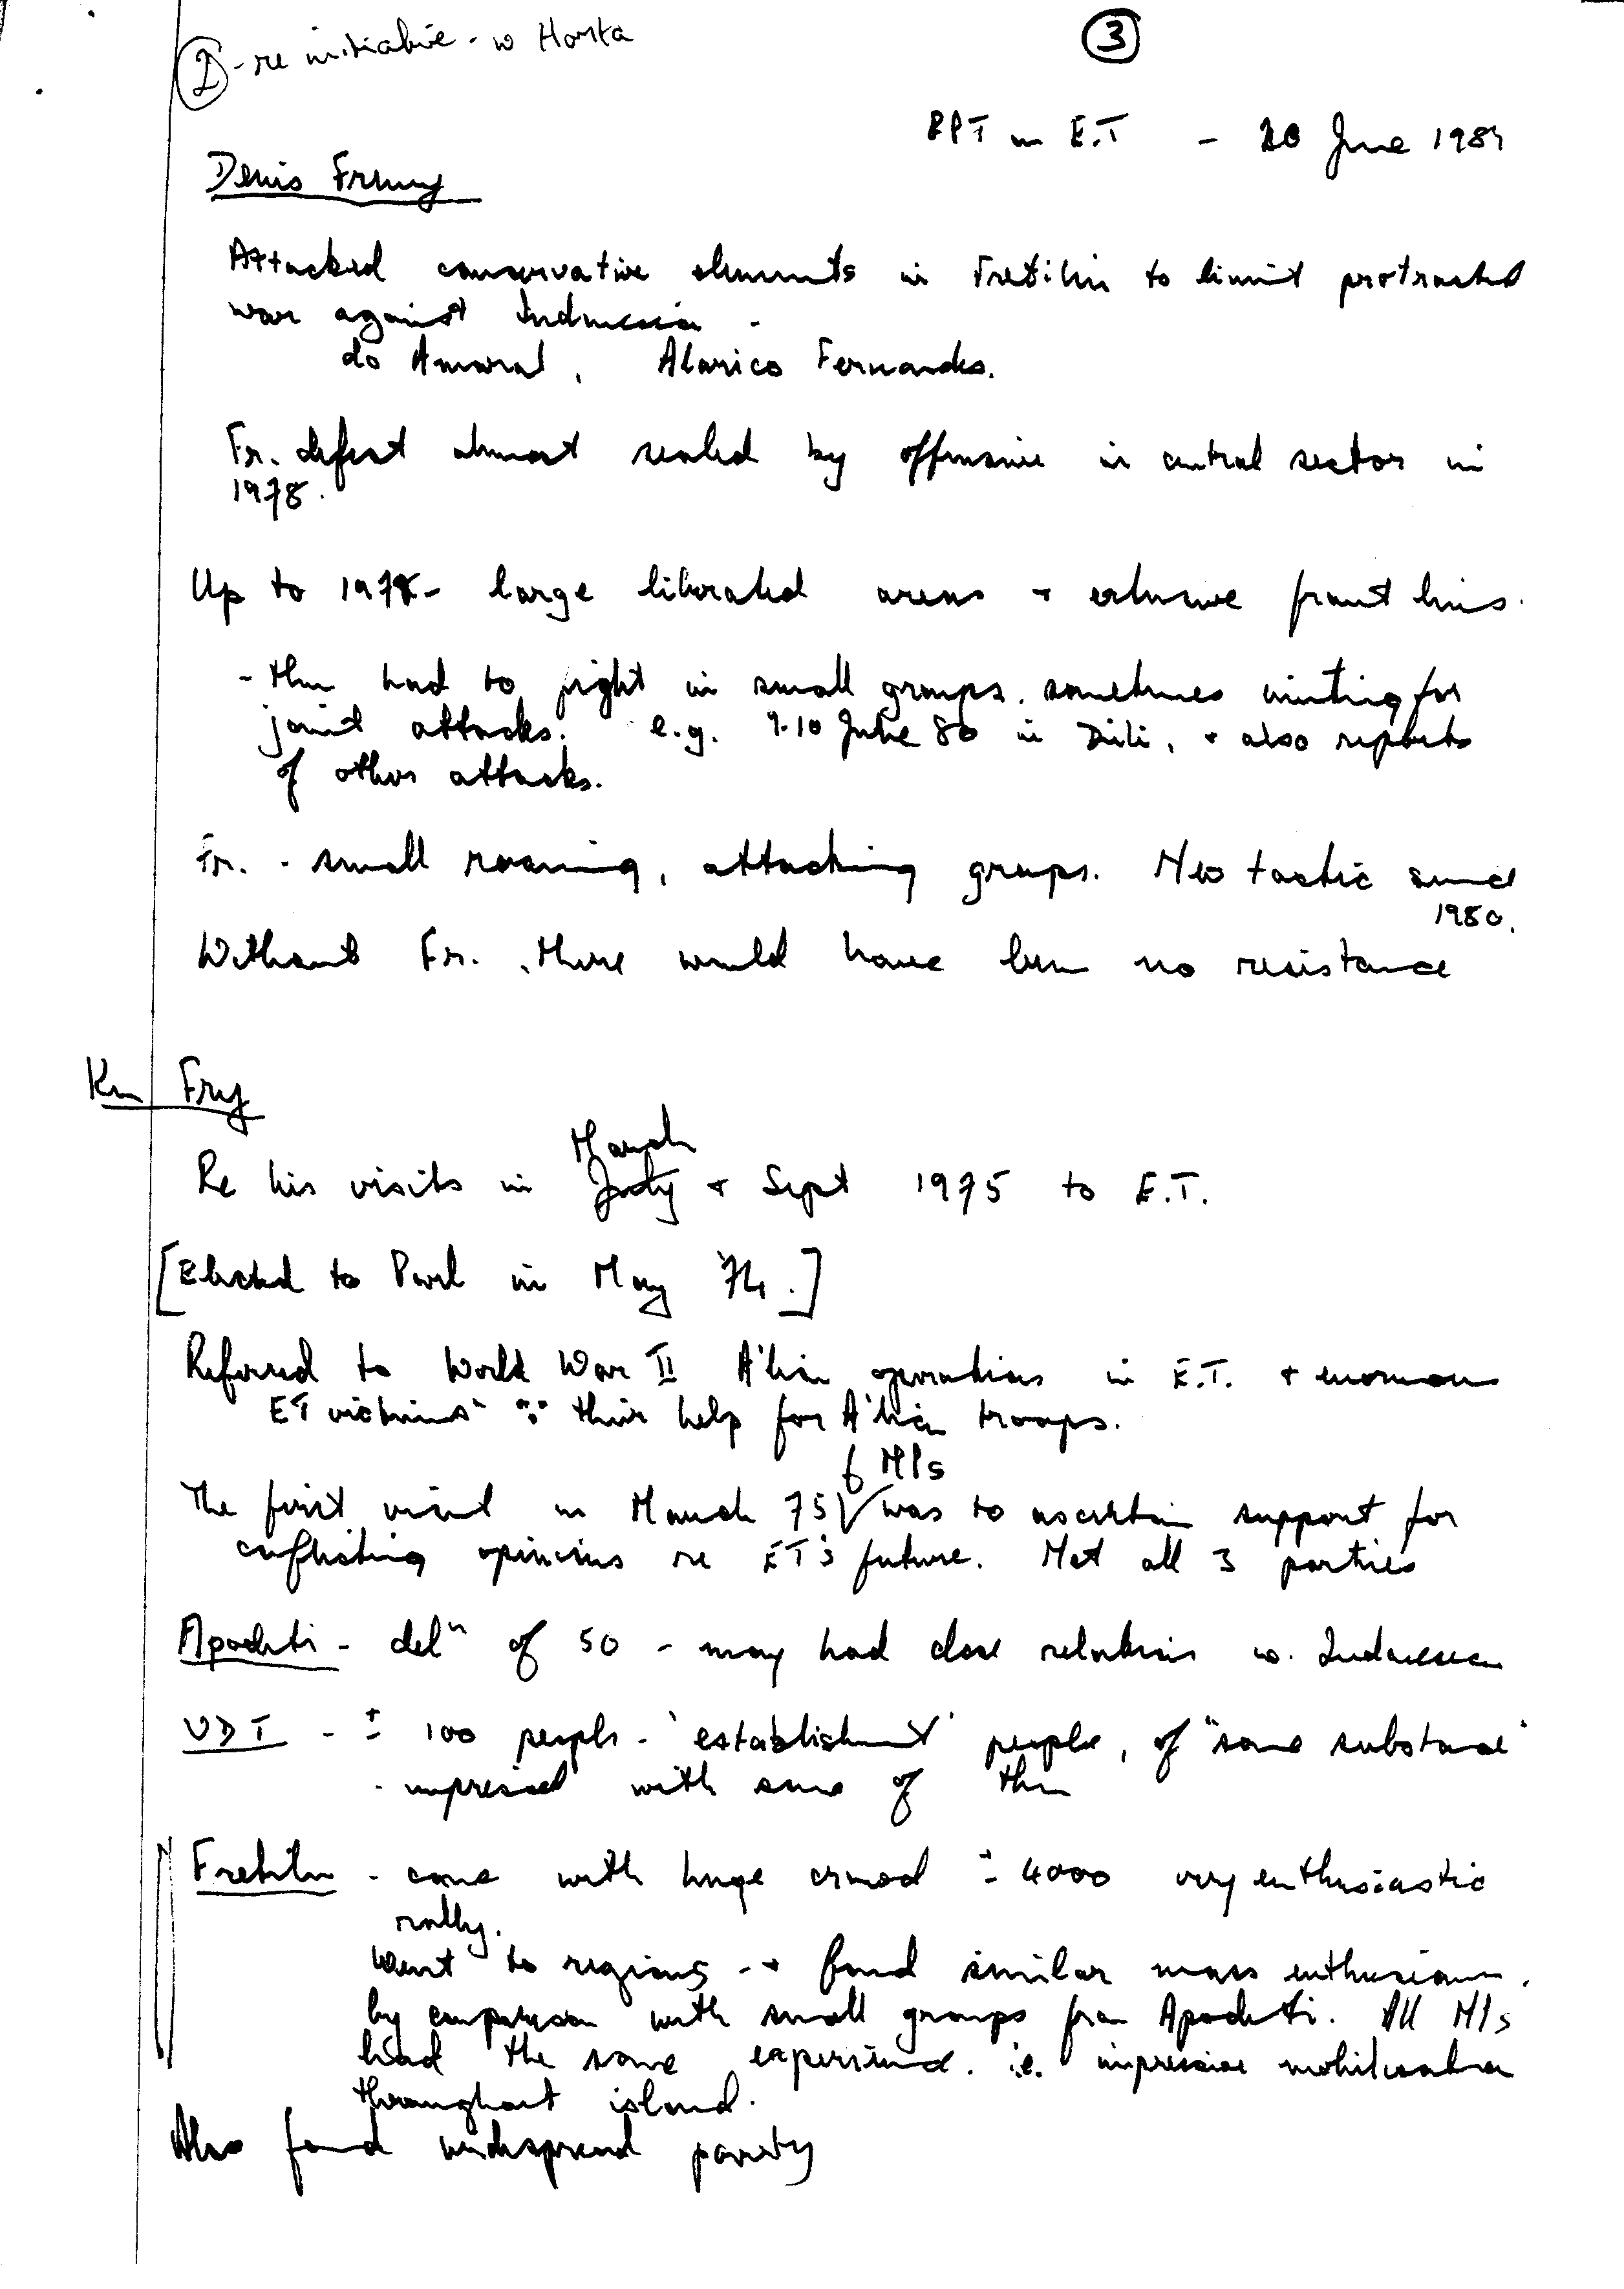 ③
② - re initiative - w Horta
PPT on E.T - 20 June 1981
Denis Freney
Attacked conservative elements in Fretilin to limit protracted
war against Indonesia -
do Amaral, Alarico Fernandes.
Fr. defeat almost sealed by offensive in central sector in
1978.
Up to 1978 - large liberated areas + extensive front lines.
- then had to fight in small groups, sometimes uniting for
joint attacks. e.g. 9-10 June 80 in Dili, + also reports
of other attacks.
Fr. - small roaming, attacking groups. New tactic since
1980.
Without Fr., there would have been no resistance
Ken Fry
March
Re his visits in July + Sept 1975 to E.T.
[Elected to Parl in May '74.]
Referred to World War II A'lian operations in E.T. + enormous
ET victims ∵ their help for A'lian troops.
6 MPs
The first visit in March 75 √ was to ascertain support for
conflicting opinions re ET's future. Met all 3 parties
Apodeti - delⁿ of 50 - many had close relations w. Indonesia
UDT - ± 100 people - 'establishment' people, of "some substance"
- impressed with some of them
Fretilin - came with huge crowd ± 4000 very enthusiastic
rally.
Went to regions - + found similar mass enthusiasm.
by comparison with small groups from Apodeti. All MPs
had the same experience. i.e. impressive mobilisation
throughout island.
Also found widespread poverty